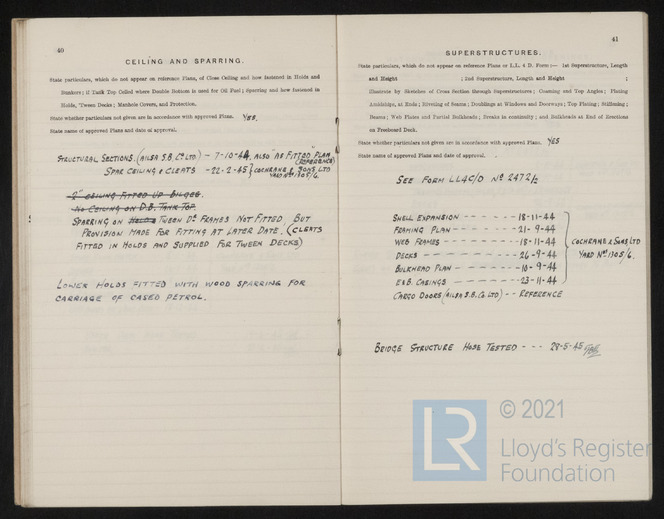 40
CEILING AND SPARRING.
State particulars, which do not appear on reference Plans, of Close Ceiling and how fastened in Holds and
Bunkers; if Tank Top Ceiled where Double Bottom is used for Oil Fuel; Sparring and how fastened in
Holds, 'Tween Decks; Manhole Covers, and Protection.
State whether particulars not given are in accordance with approved Plans. YES.
State name of approved Plans and date of approval.
STRUCTURAL SECTIONS. (AILSA S.B. Co LTD) - 7-10-44. ALSO "AS FITTED" PLAN
(REFERENCE)
SPAR CEILING & CLEATS - 22-2-45 } COCHRANE & SONS LTD
YARD Nos 1305/6.
2" CEILING FITTED UP BILGES.
NO CEILING ON D.B. TANK TOP.
SPARRING ON HOLD & TWEEN DK FRAMES NOT FITTED BUT
PROVISION MADE FOR FITTING AT LATER DATE. (CLEATS
FITTED IN HOLDS AND SUPPLIED FOR TWEEN DECKS)
LOWER HOLDS FITTED WITH WOOD SPARRING FOR
CARRIAGE OF CASED PETROL.
41
SUPERSTRUCTURES.
State particulars, which do not appear on reference Plans or L.L. 4 D. Form:— 1st Superstructure, Length
and Height ; 2nd Superstructure, Length and Height ;
Illustrate by Sketches of Cross Section through Superstructures; Coaming and Top Angles; Plating
Amidships, at Ends; Riveting of Seams; Doublings at Windows and Doorways; Top Plating; Stiffening;
Beams; Web Plates and Partial Bulkheads; Breaks in continuity; and Bulkheads at End of Erections
on Freeboard Deck.
State whether particulars not given are in accordance with approved Plans. YES
State name of approved Plans and date of approval.
SEE FORM LL4C/D No 2472/2
SHELL EXPANSION - - - - - - - 18-11-44
FRAMING PLAN - - - - - - - 21-9-44
WEB FRAMES - - - - - - - 18-11-44
DECKS - - - - - - - 26-9-44
BULKHEAD PLAN - - - - - - - 10-9-44
E&B. CASINGS - - - - - - - 23-11-44
COCHRANE & SONS LTD
YARD Nos 1305/6.
CARGO DOORS (AILSA S.B. Co LTD) - - REFERENCE
BRIDGE STRUCTURE HOSE TESTED - - - 28-5-45
LR
© 2021
Lloyd's Register
Foundation